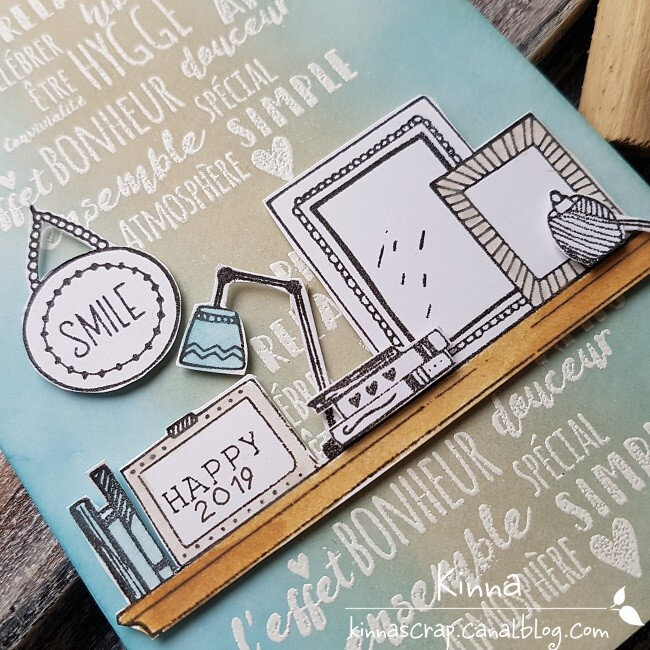 CÉLÉBRER
ÊTRE HYGGE
convivialité
BONHEUR douceur
SPÉCIAL
ensemble SIMPLE
ATMOSPHÈRE
SMILE
HAPPY
2019
douceur
BONHEUR SPÉCIAL
l'effet
ensemble SIMPLE
ATMOSPHÈRE
Kinna
kinnascrap.canalblog.com